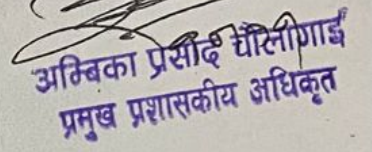 अम्बिका प्रसाद चौलागाई
प्रमुख प्रशासकीय अधिकृत